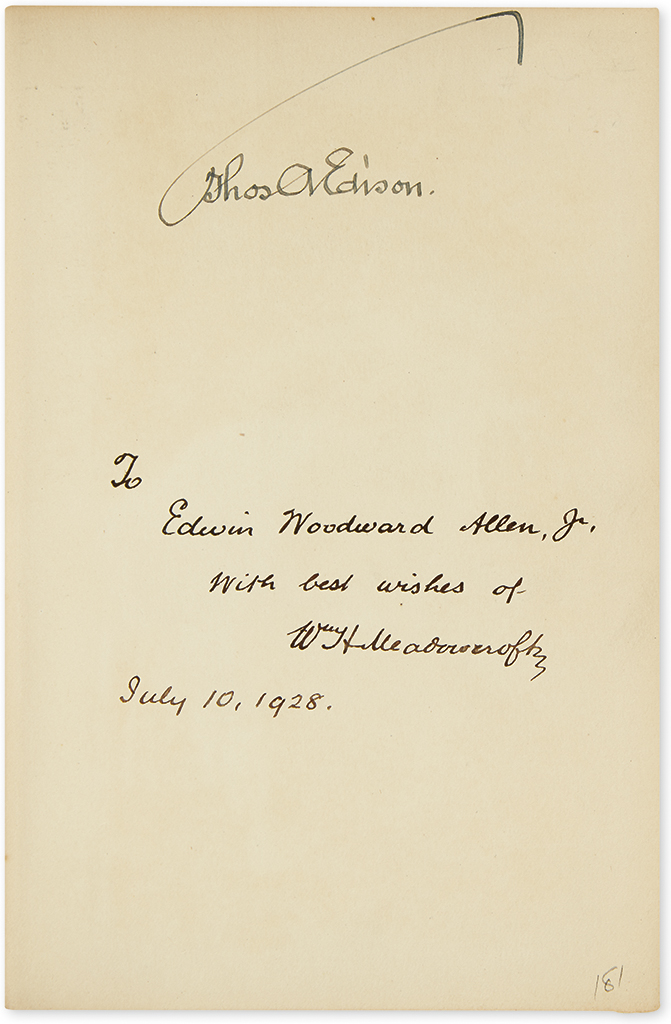 Thos A Edison.
To
Edwin Woodward Allen, Jr.
With best wishes of
Wm H Meadowcroft
July 10, 1928.
181